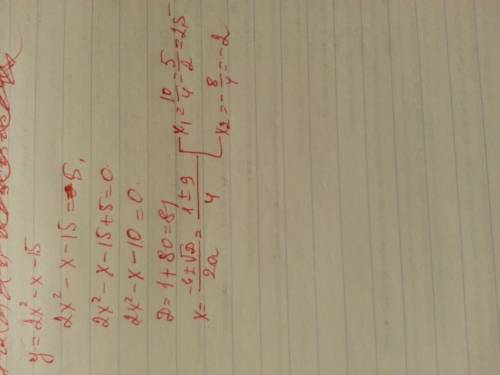 y=2x²-x-15
2x²-x-15=-5,
2x²-x-15+5=0
2x²-x-10=0.
D=1+80=81
x=\frac{-b±√D}{2a}=\frac{1±9}{4} [ x₁=\frac{10}{4}=\frac{5}{2}=2,5
x₂=-\frac{8}{4}=-2